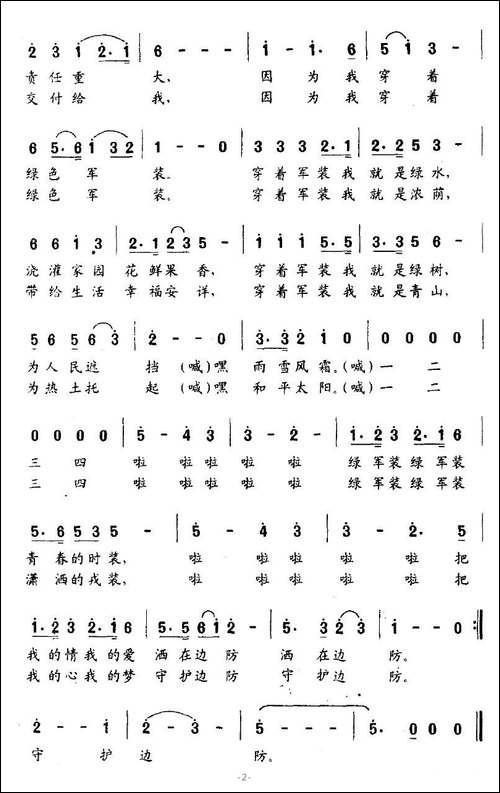 2 3 1 2·1 | 6 - - - | 1 - 1· 6 | 5 1 3 - |
责任重 大, 因为我穿着
交付给 我, 因为我穿着
6 5·6 1 3 2 | 1 - - 0 | 3 3 3 2·1 | 2·2 5 1 |
绿色 军 装。 穿着军装我 就是绿水,
绿色 军 装。 穿着军装我 就是浓荫,
6 6 1· 3 | 2·1 2 3 5 - | 1 1 1 5·5 | 3·3 5 6 - |
浇灌家园 花鲜果 香, 穿着军装我 就是绿树,
带给生活 幸福安 详, 穿着军装我 就是青山,
5 6 5 6 3 | 2 - - 0 | 3·3 2 1 0 | 0 0 0 0 |
为人民遮 挡 (喊)嘿 雨雪风霜。(喊)一 二
为热土托 起 (喊)嘿 和平太阳。(喊)一 二
0 0 0 0 | 5 - 4 3 | 3 - 2 - | 1·2 3 2·1 6 |
三 四 啦 啦 啦 啦 啦 绿军装绿军装
三 四 啦 啦 啦 啦 啦 绿军装绿军装
5·6 5 3 5 - | 5 - 4 3 | 3 - 2· 5 |
青春的时装, 啦 啦 啦 啦 啦 把
潇洒的戎装, 啦 啦 啦 啦 啦 把
1·2 3 2·1 6 | 5·5 6 1 2 - | 5· 3 2 3 | 1 - - 0 :‖
我的情我的爱 洒在边 防 洒在边 防。
我的心我的梦 守护边 防 守护边 防。
2 - - 1 | 2 - 3 - | 5 - - - | 5· 0 0 0 ‖
守 护 边 防。
-2-